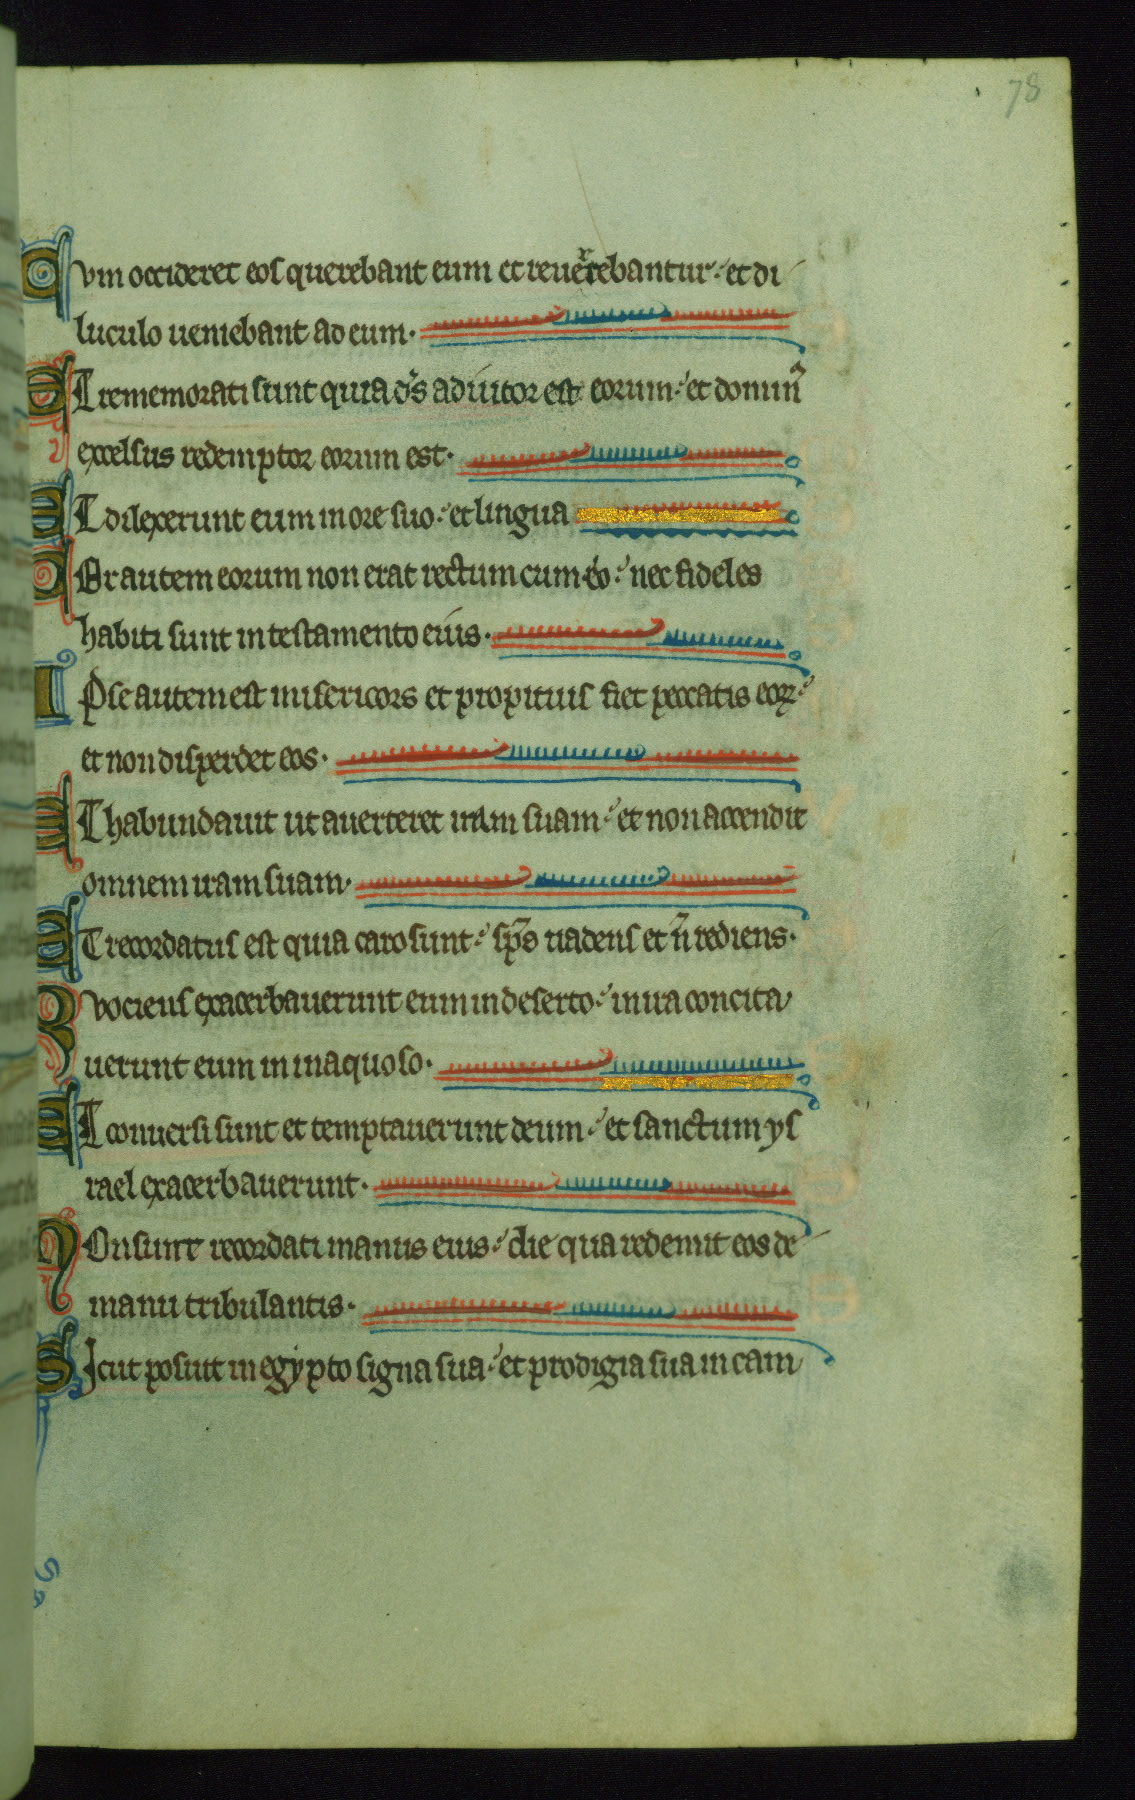 78
Qvm occideret eos querebant eum et reuertebantur: et di
luculo ueniebant ad eum.
ET rememorati sunt quia d̄s adiutor est eorum: et domin̄
excelsus redemptor eorum est.
ET dilexerunt eum in ore suo: et lingua
COr autem eorum non erat rectum cum eo: nec fideles
habiti sunt in testamento eius.
IPse autem est misericors et propitius fiet peccatis eoꝝ:
et non disperdet eos.
ET habundauit ut auerteret iram suam: et non accendit
omnem iram suam.
ET recordatus est quia caro sunt: sp̄s uadens et n̄ rediens.
Qvociens exacerbauerunt eum in deserto: in ira concita
uerunt eum in inaquoso.
ET conuersi sunt et temptauerunt deum: et sanctum ys
rael exacerbauerunt.
NOn sunt recordati manus eius: die qua redemit eos de
manu tribulantis.
SIcut posuit in egypto signa sua: et prodigia sua in cam